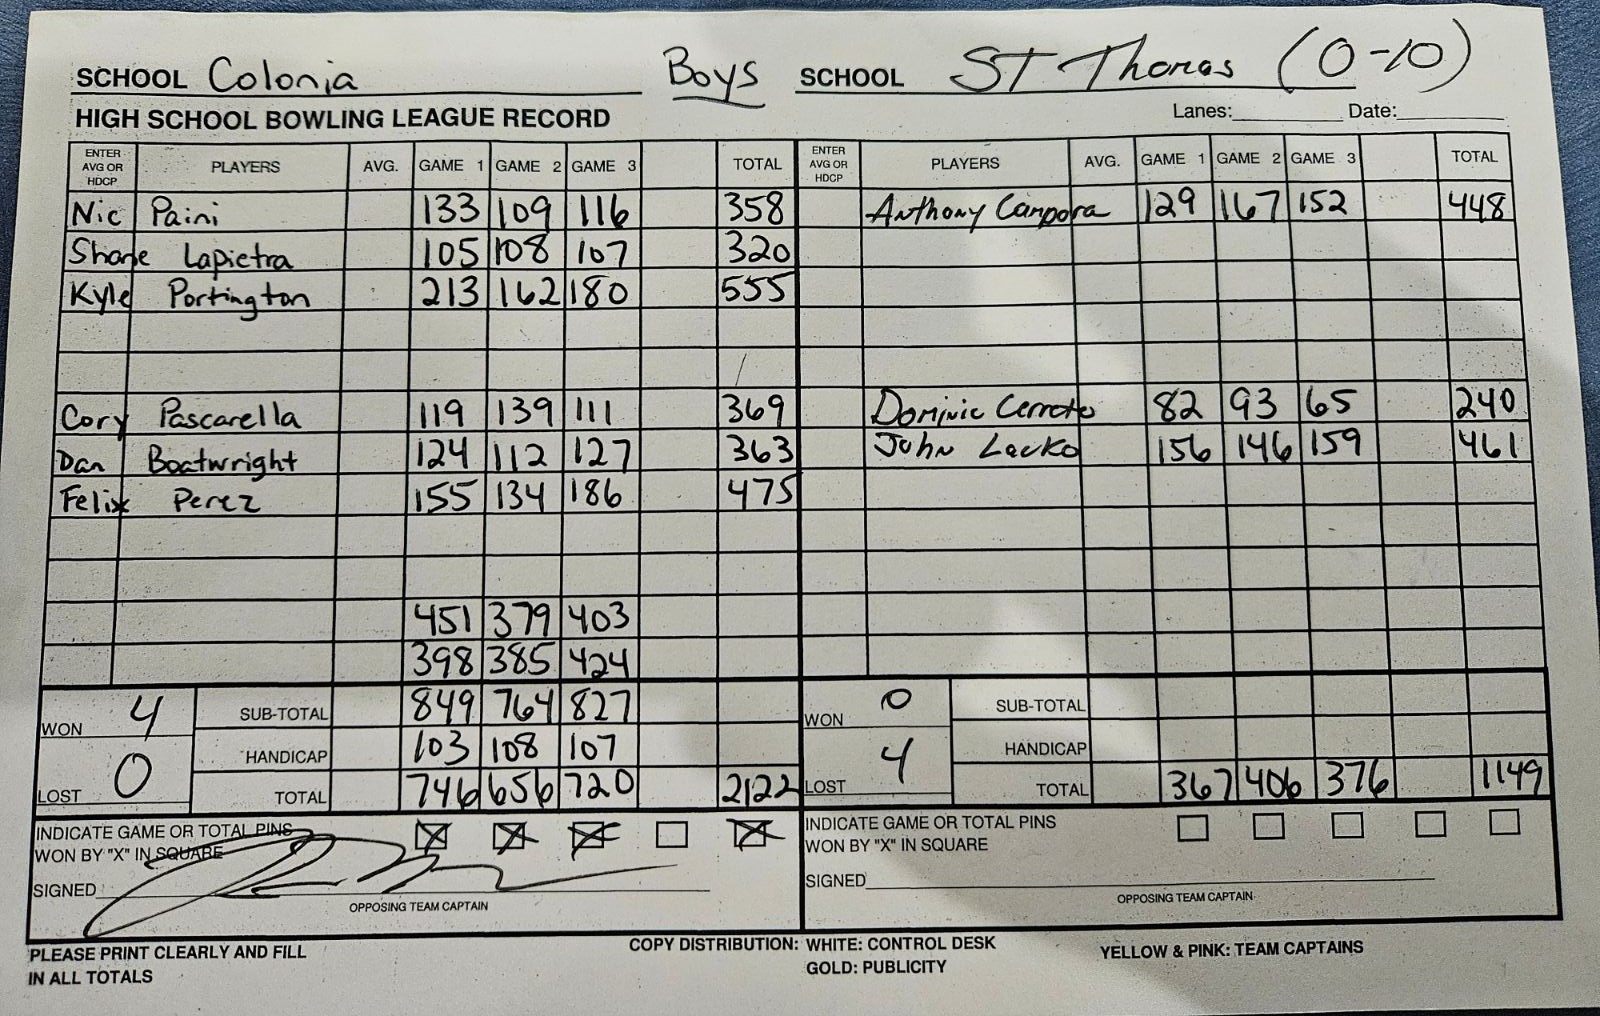 SCHOOL Colonia Boys SCHOOL ST Thomas (0-10)
HIGH SCHOOL BOWLING LEAGUE RECORD Lanes: Date:
ENTER AVG OR HDCP PLAYERS AVG. GAME 1 GAME 2 GAME 3 TOTAL ENTER AVG OR HDCP PLAYERS AVG. GAME 1 GAME 2 GAME 3 TOTAL
Nic Paini 133 109 116 358 Anthony Campora 129 167 152 448
Shane Lapietra 105 108 107 320
Kyle Portington 213 162 180 555
Cory Pascarella 119 139 111 369 Dominic Cerrato 82 93 65 240
Dan Boatwright 124 112 127 363 John Lacko 156 146 159 461
Felix Perez 155 134 186 475
451 379 403
398 385 424
WON 4 SUB-TOTAL 849 764 827 WON 0 SUB-TOTAL
HANDICAP 103 108 107 HANDICAP
LOST 0 TOTAL 746 656 720 2122 LOST 4 TOTAL 367 406 376 1149
INDICATE GAME OR TOTAL PINS INDICATE GAME OR TOTAL PINS
WON BY "X" IN SQUARE WON BY "X" IN SQUARE
SIGNED SIGNED
OPPOSING TEAM CAPTAIN OPPOSING TEAM CAPTAIN
PLEASE PRINT CLEARLY AND FILL COPY DISTRIBUTION: WHITE: CONTROL DESK YELLOW & PINK: TEAM CAPTAINS
IN ALL TOTALS GOLD: PUBLICITY